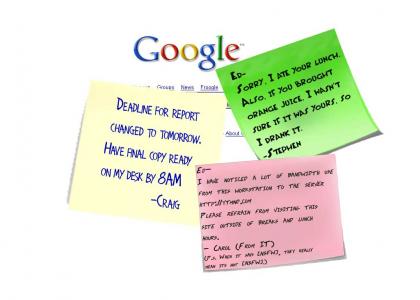 Google™
Groups News Froogle
About G
Deadline for report
changed to tomorrow.
Have final copy ready
on my desk by 8AM
-Craig
Ed-
Sorry, I ate your lunch.
Also, if you brought
orange juice, I wasn't
sure if it was yours, so
I drank it.
-Stephen
Ed-
I have noticed a lot of bandwidth use
from this workstation to the server
http://ytmnd.com
Please refrain from visiting this
site outside of breaks and lunch
hours.
- Carol (From IT)
(P.s. When it says [NSFW], they really
mean its not [NSFW])